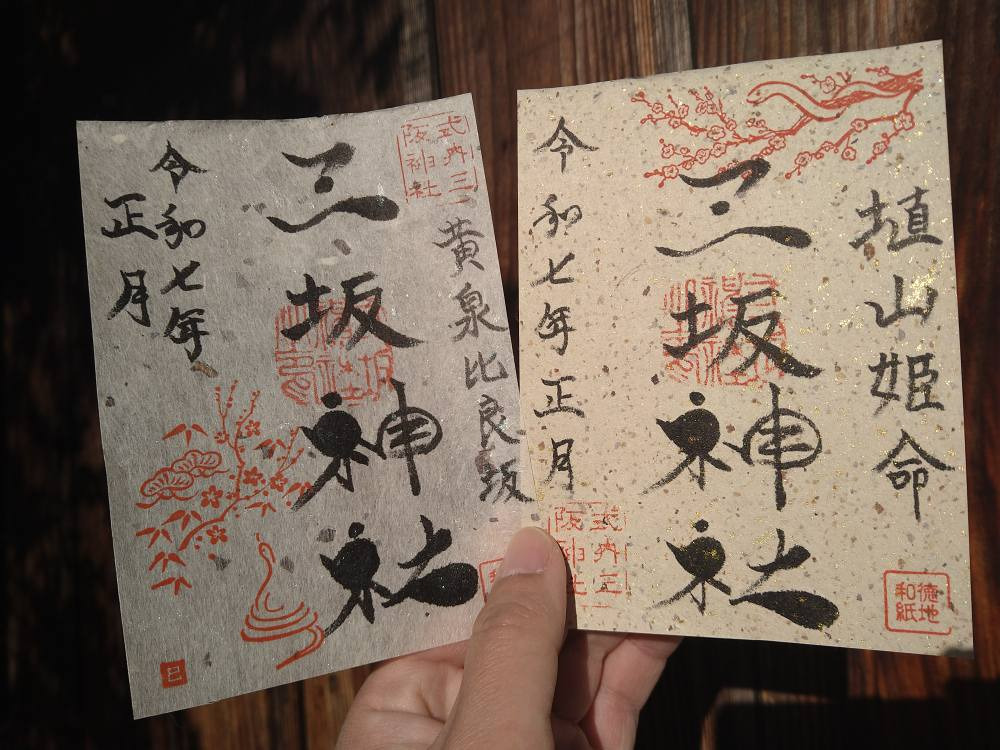 式内三
阪神社
黄泉比良坂
三坂神社
令和七年
正月
巳
埴山姫命
三坂神社
令和七年正月
式内三
阪神社
徳地
和紙